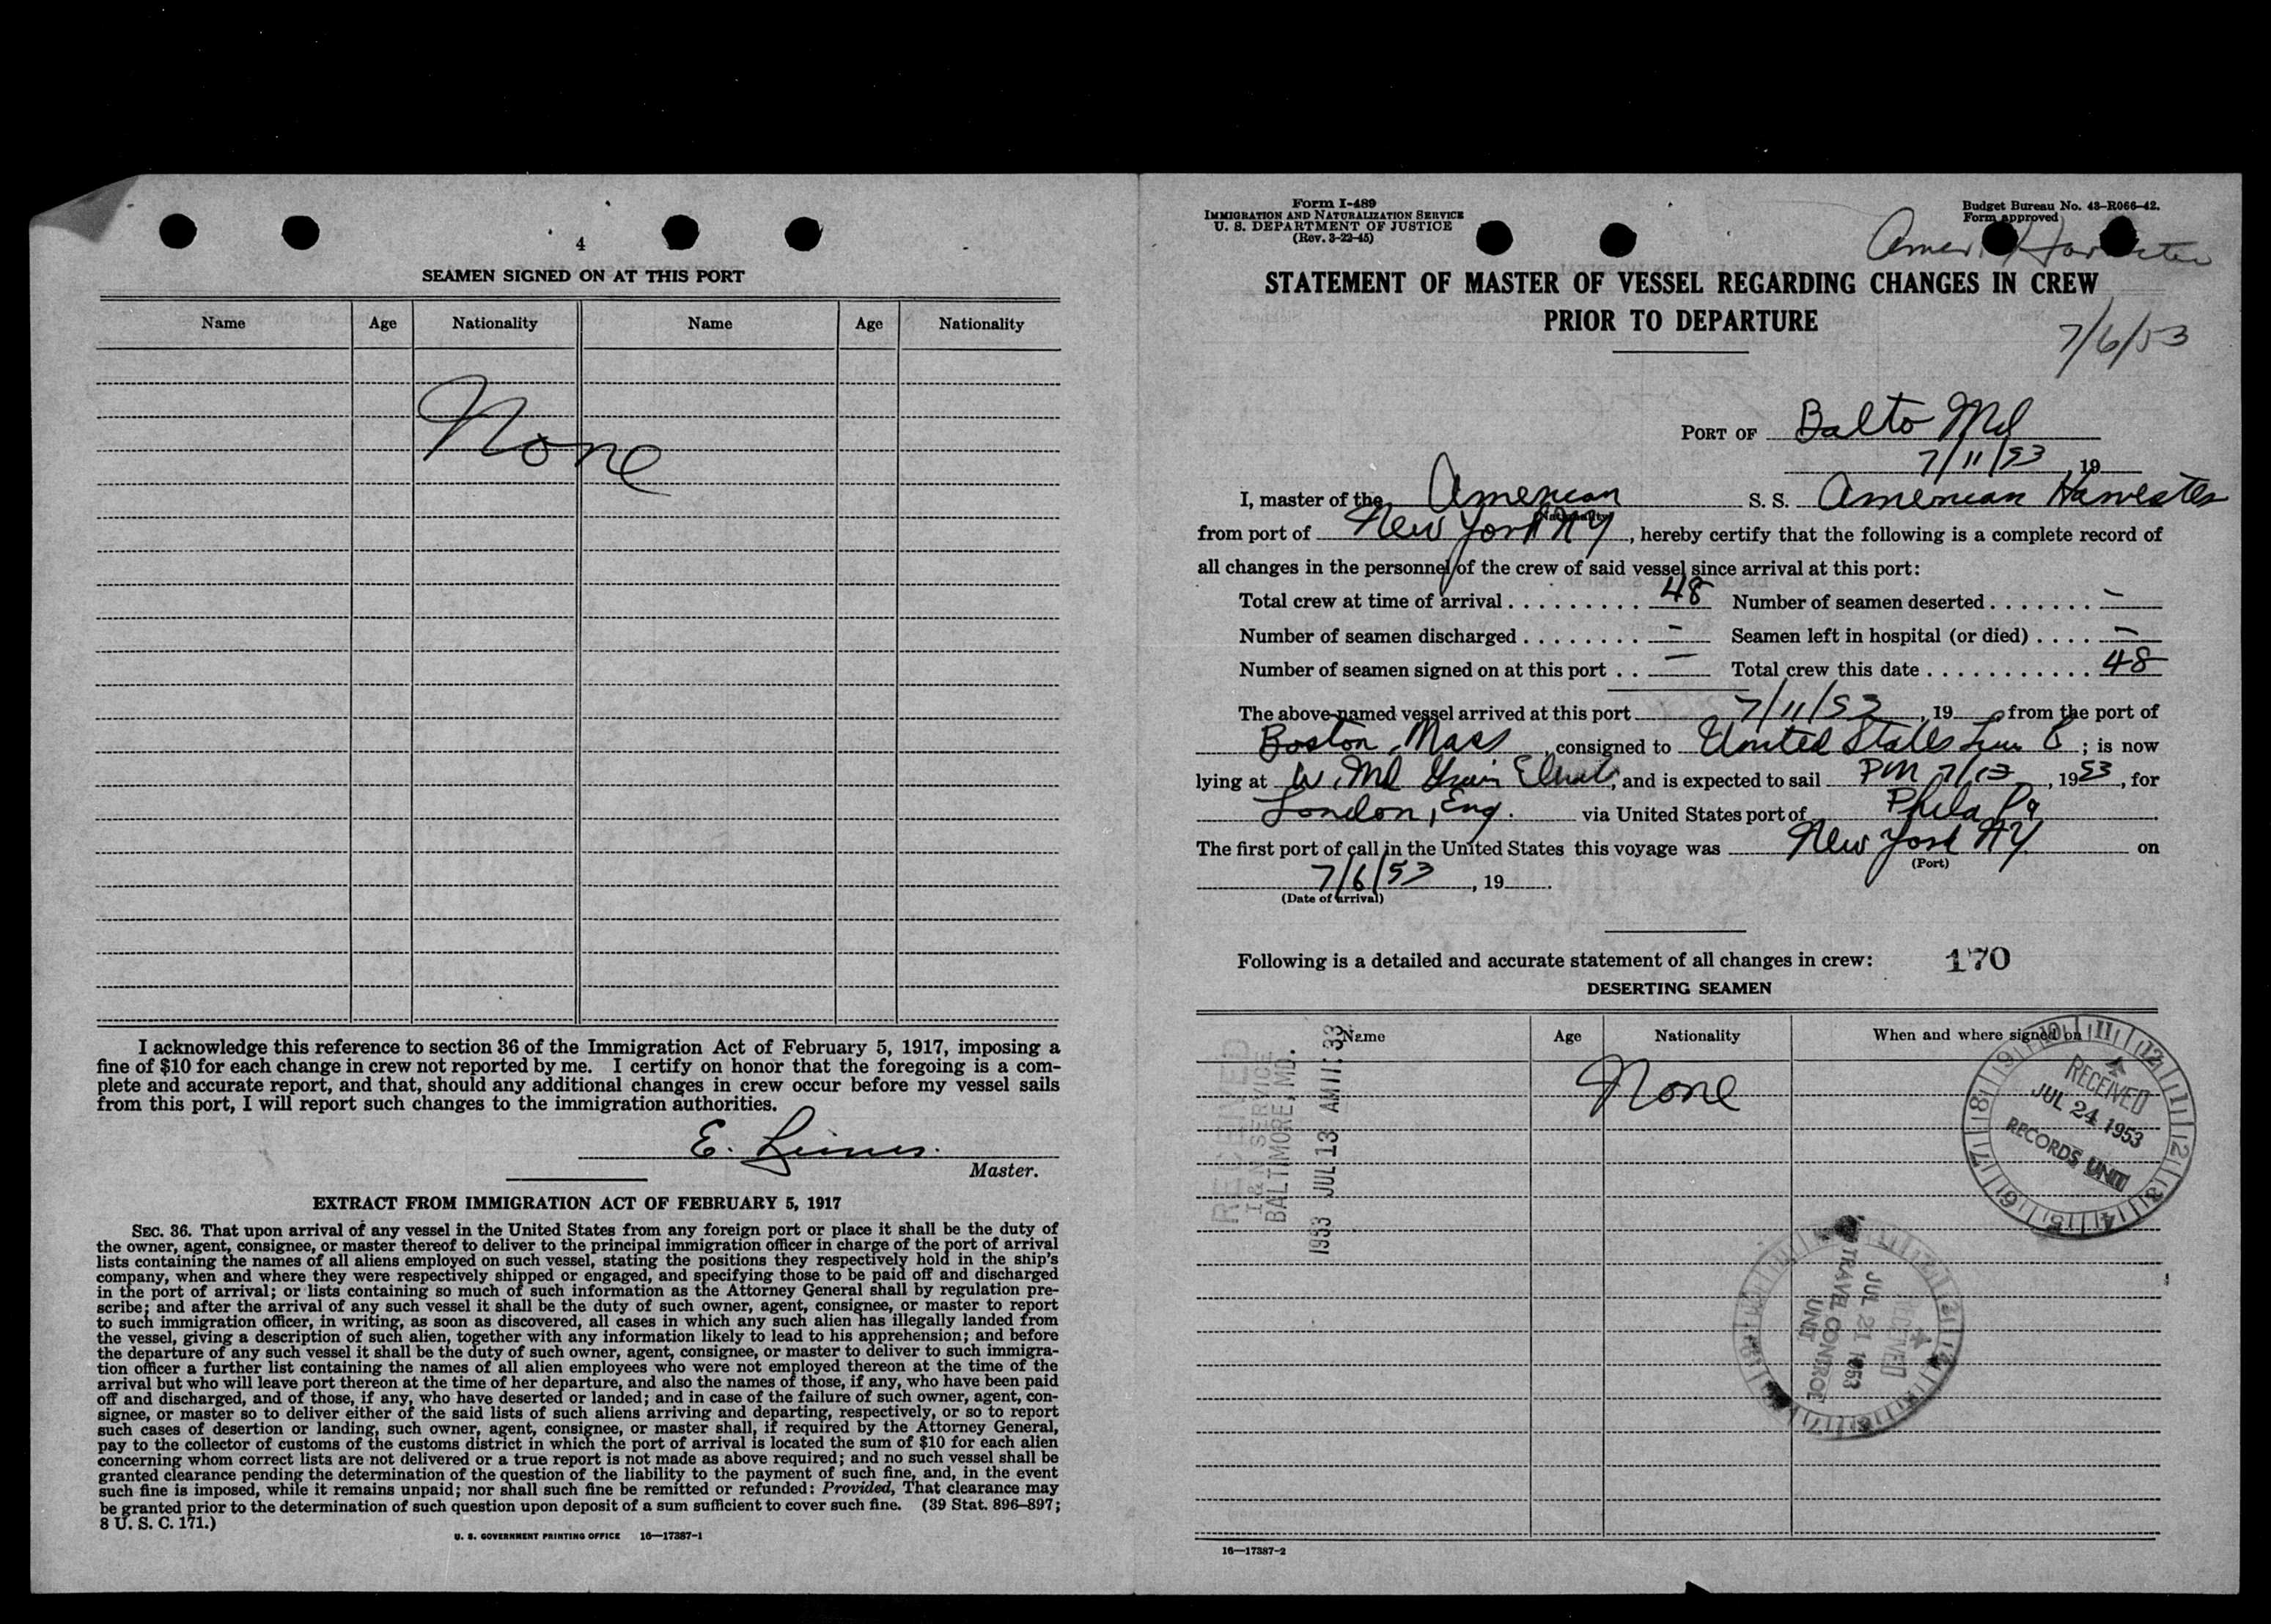 4
SEAMEN SIGNED ON AT THIS PORT
Name Age Nationality Name Age Nationality
None
I acknowledge this reference to section 36 of the Immigration Act of February 5, 1917, imposing a
fine of $10 for each change in crew not reported by me. I certify on honor that the foregoing is a com-
plete and accurate report, and that, should any additional changes in crew occur before my vessel sails
from this port, I will report such changes to the immigration authorities.
E.
Master.
EXTRACT FROM IMMIGRATION ACT OF FEBRUARY 5, 1917
SEC. 36. That upon arrival of any vessel in the United States from any foreign port or place it shall be the duty of
the owner, agent, consignee, or master thereof to deliver to the principal immigration officer in charge of the port of arrival
lists containing the names of all aliens employed on such vessel, stating the positions they respectively hold in the ship's
company, when and where they were respectively shipped or engaged, and specifying those to be paid off and discharged
in the port of arrival; or lists containing so much of such information as the Attorney General shall by regulation pre-
scribe; and after the arrival of any such vessel it shall be the duty of such owner, agent, consignee, or master to report
to such immigration officer, in writing, as soon as discovered, all cases in which any such alien has illegally landed from
the vessel, giving a description of such alien, together with any information likely to lead to his apprehension; and before
the departure of any such vessel it shall be the duty of such owner, agent, consignee, or master to deliver to such immigra-
tion officer a further list containing the names of all alien employees who were not employed thereon at the time of the
arrival but who will leave port thereon at the time of her departure, and also the names of those, if any, who have been paid
off and discharged, and of those, if any, who have deserted or landed; and in case of the failure of such owner, agent, con-
signee, or master so to deliver either of the said lists of such aliens arriving and departing, respectively, or so to report
such cases of desertion or landing, such owner, agent, consignee, or master shall, if required by the Attorney General,
pay to the collector of customs of the customs district in which the port of arrival is located the sum of $10 for each alien
concerning whom correct lists are not delivered or a true report is not made as above required; and no such vessel shall be
granted clearance pending the determination of the question of the liability to the payment of such fine, and, in the event
such fine is imposed, while it remains unpaid; nor shall such fine be remitted or refunded: Provided, That clearance may
be granted prior to the determination of such question upon deposit of a sum sufficient to cover such fine. (39 Stat. 896–897;
8 U. S. C. 171.)
U. S. GOVERNMENT PRINTING OFFICE 16—17387-1
Form I-489
IMMIGRATION AND NATURALIZATION SERVICE
U. S. DEPARTMENT OF JUSTICE
(Rev. 3-22-45)
Budget Bureau No. 43-R066-42.
Form approved
STATEMENT OF MASTER OF VESSEL REGARDING CHANGES IN CREW
PRIOR TO DEPARTURE
7/6/53
PORT OF Balto Md
7/11/53, 19
I, master of the American S. S. American Harvester
(Nationality)
from port of New York NY, hereby certify that the following is a complete record of
all changes in the personnel of the crew of said vessel since arrival at this port:
Total crew at time of arrival . . . . . . . . . 48 Number of seamen deserted . . . . . . . –
Number of seamen discharged . . . . . . . . – Seamen left in hospital (or died) . . . . –
Number of seamen signed on at this port . . – Total crew this date . . . . . . . . . . . . 48
The above-named vessel arrived at this port 7/11/53, 19 from the port of
Boston, Mass, consigned to United States ; is now
lying at W. Md , and is expected to sail PM 7/13, 1953, for
London, Eng. via United States port of Phila Pa
The first port of call in the United States this voyage was New York NY on
(Port)
7/6/53, 19 .
(Date of arrival)
Following is a detailed and accurate statement of all changes in crew: 170
DESERTING SEAMEN
Name Age Nationality When and where signed on
None
RECEIVED
I & N SERVICE
BALTIMORE, MD.
1953 JUL 13 AM 11:33
RECEIVED
JUL 24 1953
RECORDS UNIT
RECEIVED
JUL 21 1953
TRAVEL CONTROL
UNIT
16—17387-2